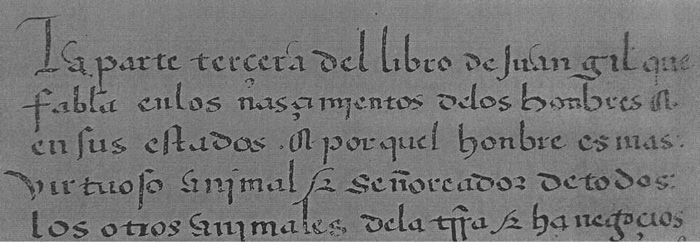 La parte terçera del libro de Juan gil que
fabla en los nasçimientos delos honbres &
en sus estados . & por quel honbre es mas :
virtuoso animal & señoreador de todos :
los otros animales de la tr̃ra & ha negoçios